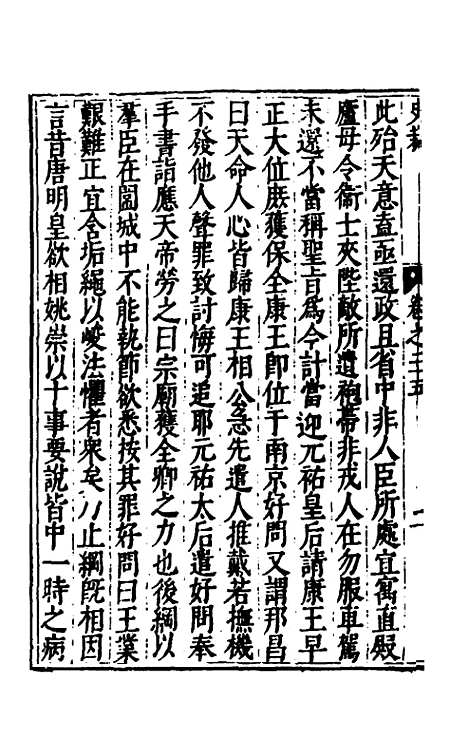 史
卷之三五
此殆天意盍亟還政且省中非人臣所處宜寓直殿
廬毋令衞士夾陛敵所遺袍帶非戎人在勿服車駕
未還不當稱聖旨爲今計當迎元祐皇后請康王早
正大位庶獲保全康王卽位于南京好問又謂邦昌
曰天命人心皆歸康王相公急先遣人推戴若撫機
不發他人聲罪致討悔可追耶元祐太后遣好問奉
手書詣應天帝勞之曰宗廟獲全卿之力也後綱以
羣臣在圍城中不能執節欲悉按其罪好問曰王業
艱難正宜含垢繩以峻法懼者衆矣乃止綱旣相因
言昔唐明皇欲相姚崇以十事要說皆中一時之病